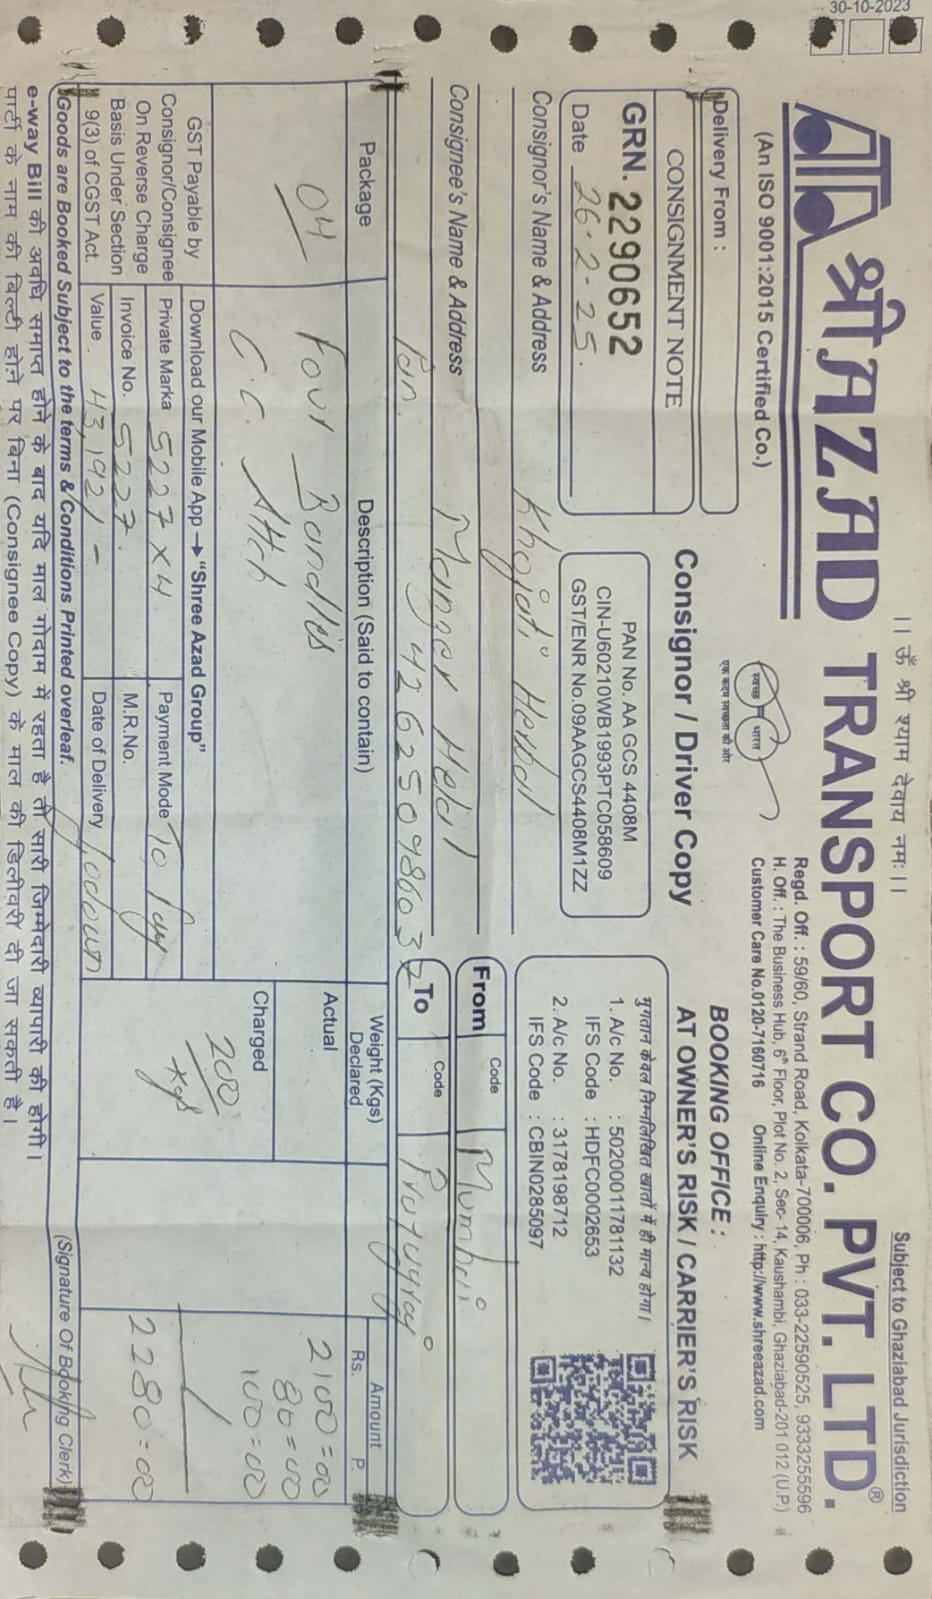 30-10-2023
।। ॐ श्री श्याम देवाय नमः।।
Subject to Ghaziabad Jurisdiction
श्री AZAD TRANSPORT CO. PVT. LTD.®
(An ISO 9001:2015 Certified Co.)
स्वच्छ भारत
एक कदम स्वच्छता की ओर
Regd. Off. : 59/60, Strand Road, Kolkata-700006, Ph : 033-22590525, 9333255596
H. Off. : The Business Hub, 6th Floor, Plot No. 2, Sec- 14, Kaushambi, Ghaziabad-201 012 (U.P.)
Customer Care No.0120-7160716 Online Enquiry : http://www.shreeazad.com
Delivery From :
BOOKING OFFICE :
Consignor / Driver Copy
AT OWNER'S RISK / CARRIER'S RISK
CONSIGNMENT NOTE
GRN. 2290652
Date 26-2-25.
PAN No. AA GCS 4408M
CIN-U60210WB1993PTC058609
GST/ENR No.09AAGCS4408M1ZZ
भुगतान केवल निम्नलिखित खातों में ही मान्य होगा।
1. A/c No. : 50200011781132
IFS Code : HDFC0002653
2. A/c No. : 3178198712
IFS Code : CBIN0285097
Consignor's Name & Address Khojati Herbal
From Code Mumbai
Consignee's Name & Address
To Code
Package
Description (Said to contain)
Weight (Kgs) Declared
Amount
Rs. P.
04
Four Bundles
Actual
2100=00
80=00
C.C. Attch
Charged
200 Kgs
100=00
2280=00
GST Payable by
Consignor/Consignee
On Reverse Charge
Basis Under Section
9(3) of CGST Act.
Download our Mobile App → "Shree Azad Group"
Private Marka 5227 x 4
Payment Mode To Pay
Invoice No. 5227.
M.R.No.
Value 43,192/-
Date of Delivery Godown
Goods are Booked Subject to the terms & Conditions Printed overleaf.
(Signature Of Booking Clerk)
e-way Bill की अवधि समाप्त होने के बाद यदि माल गोदाम में रहता है तो सारी जिम्मेदारी व्यापारी की होगी।
पार्टी के नाम की बिल्टी होने पर बिना (Consignee Copy) के माल की डिलीवरी दी जा सकती है।